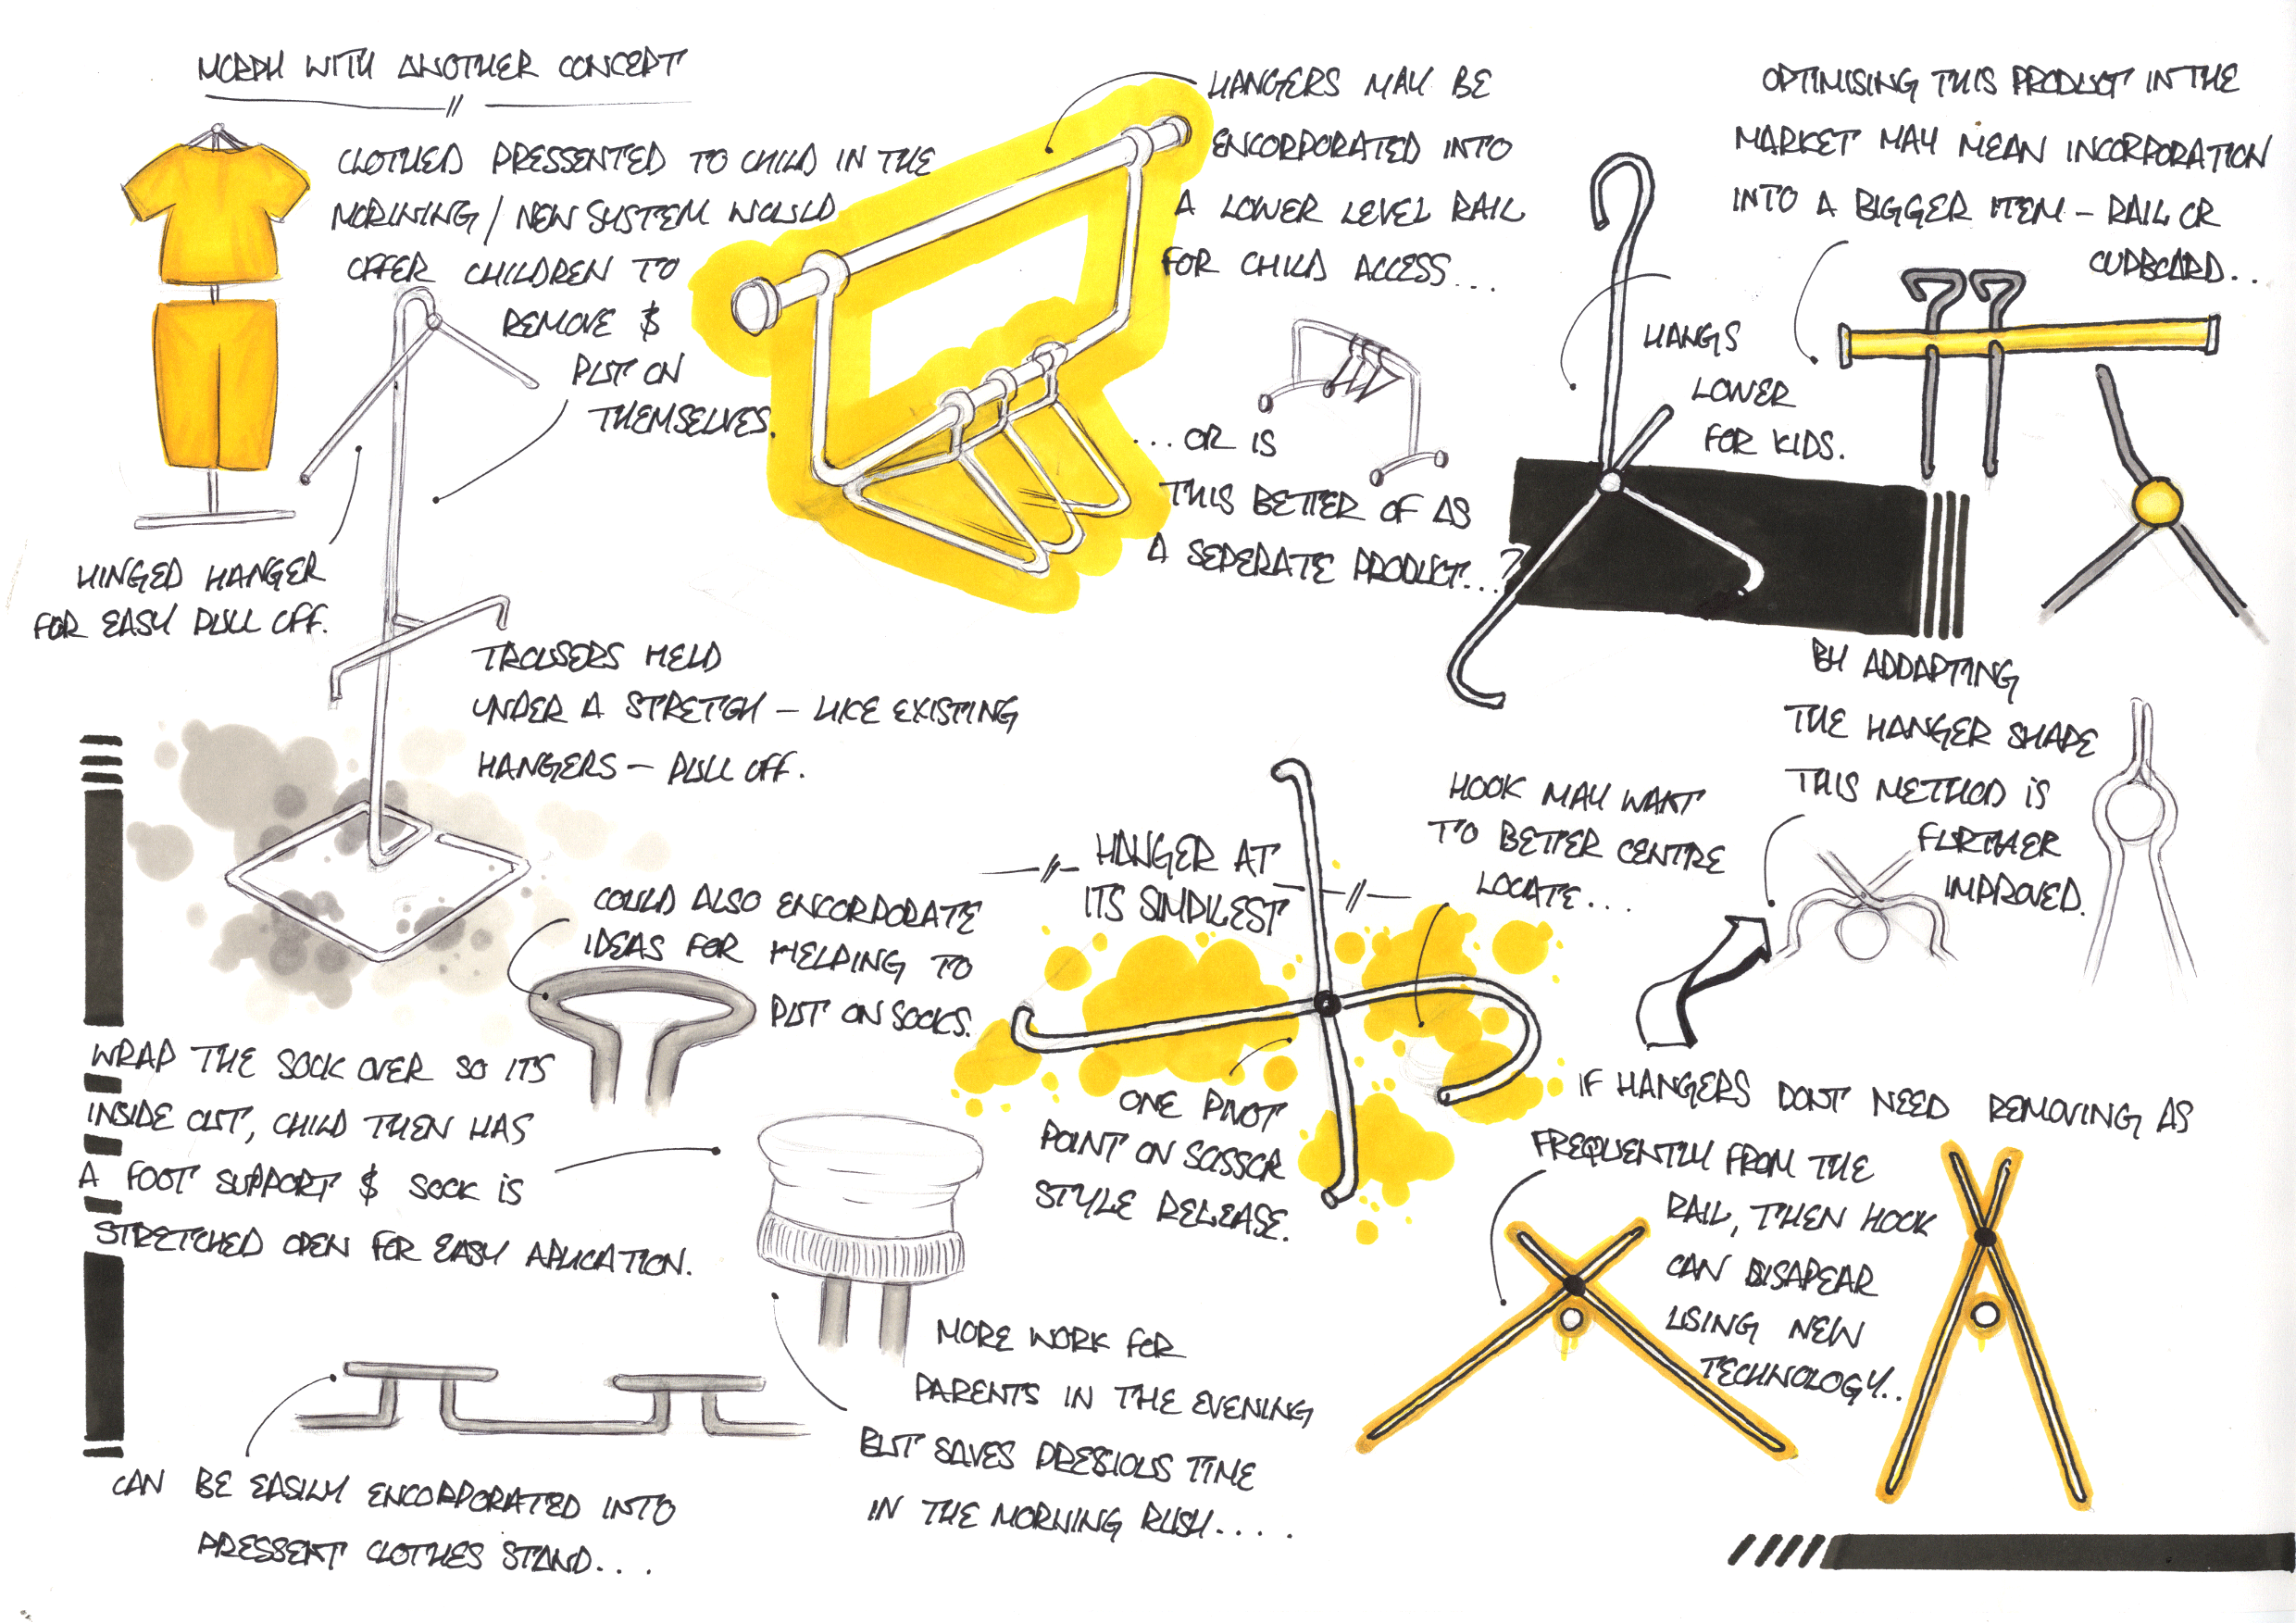 MORPH WITH ANOTHER CONCEPT
CLOTHED PRESSENTED TO CHILD IN THE
MORINING / NEW SYSTEM WOULD
OFFER CHILDREN TO
REMOVE &
PUT ON
THEMSELVES.
HINGED HANGER
FOR EASY PULL OFF.
TROUSERS HELD
UNDER A STRETGH – LIKE EXISTING
HANGERS – PULL OFF.
HANGERS MAY BE
ENCORPORATED INTO
A LOWER LEVEL RAIL
FOR CHILD ACCESS...
...OR IS
THIS BETTER OF AS
A SEPERATE PRODUCT...?
OPTIMISING THIS PRODUCT IN THE
MARKET MAY MEAN INCORPORATION
INTO A BIGGER ITEM – RAIL OR
CUPBOARD...
HANGS
LOWER
FOR KIDS.
BY ADDAPTING
THE HANGER SHAPE
THIS METHOD IS
FURTHER
IMPROVED.
COULD ALSO ENCORPORATE
IDEAS FOR HELPING TO
PUT ON SOCKS.
HANGER AT
ITS SIMPILEST
HOOK MAY WANT
TO BETTER CENTRE
LOCATE...
ONE PIVOT
POINT ON SCISSOR
STYLE RELEASE.
WRAP THE SOCK OVER SO ITS
INSIDE OUT, CHILD THEN HAS
A FOOT SUPPORT & SOCK IS
STRETCHED OPEN FOR EASY APLICATION.
IF HANGERS DONT NEED REMOVING AS
FREQUENTLY FROM THE
RAIL, THEN HOOK
CAN DISAPEAR
USING NEW
TECHNOLOGY..
MORE WORK FOR
PARENTS IN THE EVENING
BUT SAVES PRESIOUS TIME
IN THE MORNING RUSH....
CAN BE EASILY ENCORPORATED INTO
PRESSENT CLOTHES STAND...